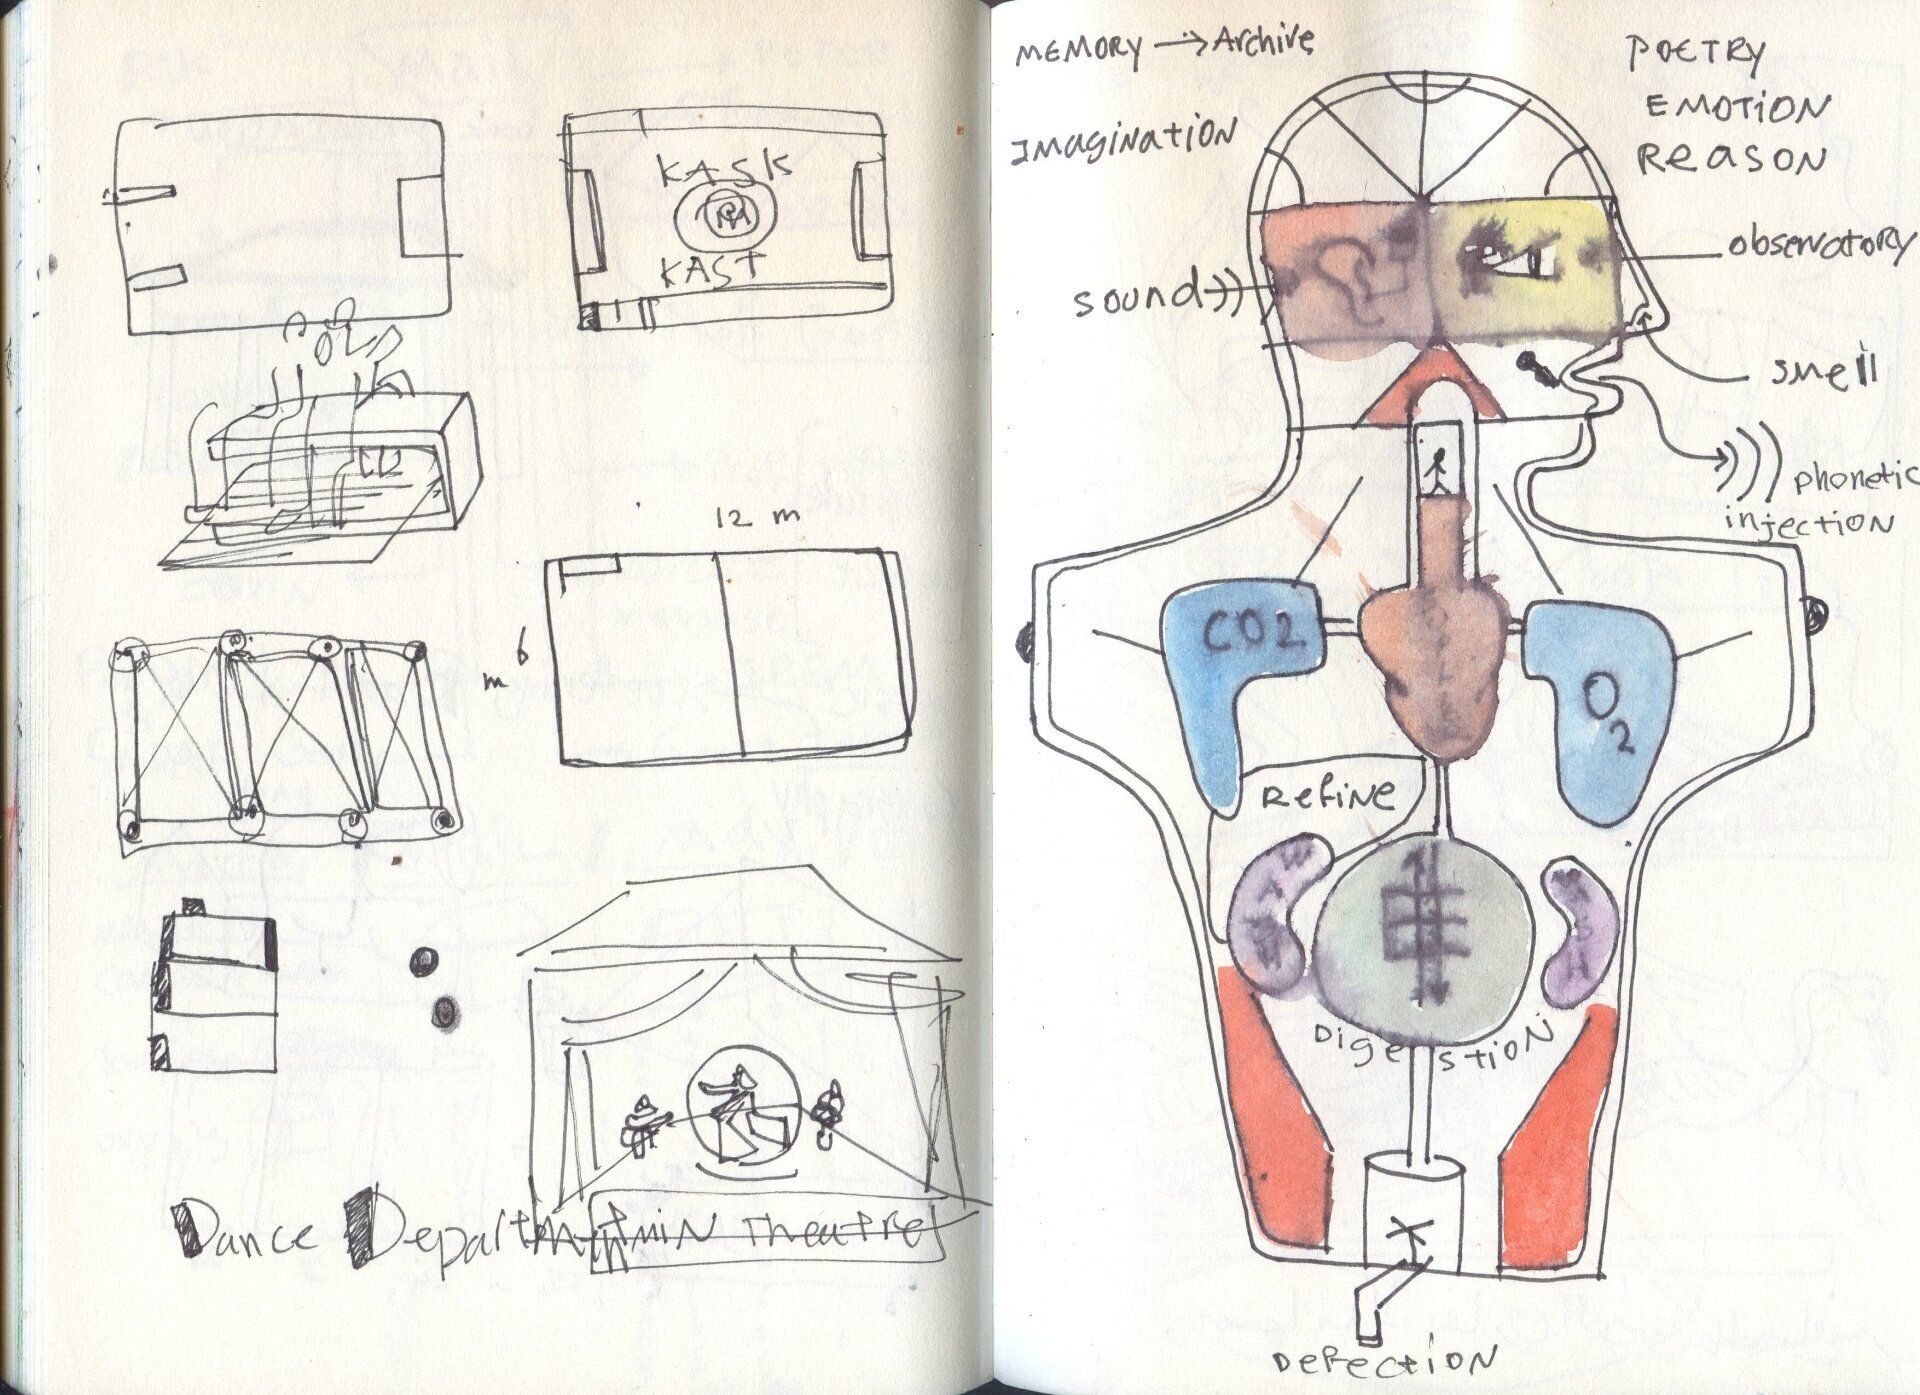 KASK
KAST
12 m
6
m
Dance Department in Theatre
MEMORY → Archive
IMAginAtiON
POETRY
EMOTiON
REASON
observatory
sound
smell
phonetic
injection
CO2
O2
REFiNE
DigestiON
DEFECtiON